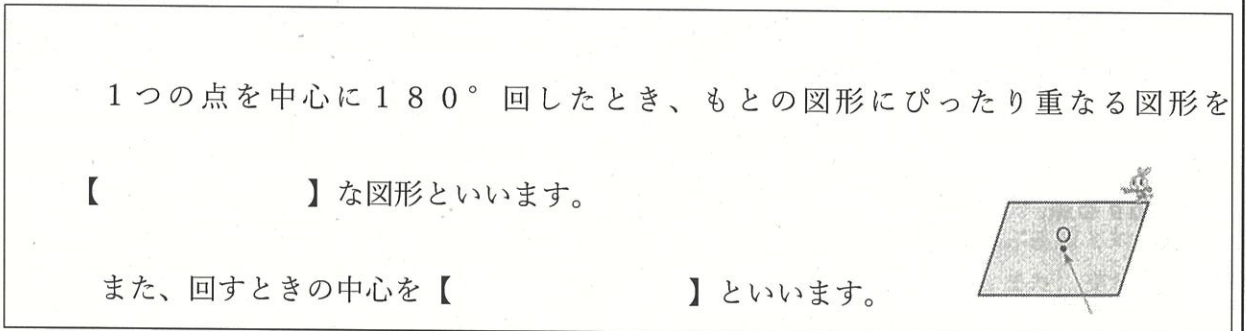 1つの点を中心に180°回したとき、もとの図形にぴったり重なる図形を
【　　　　　　】な図形といいます。
また、回すときの中心を【　　　　　　　】といいます。
O